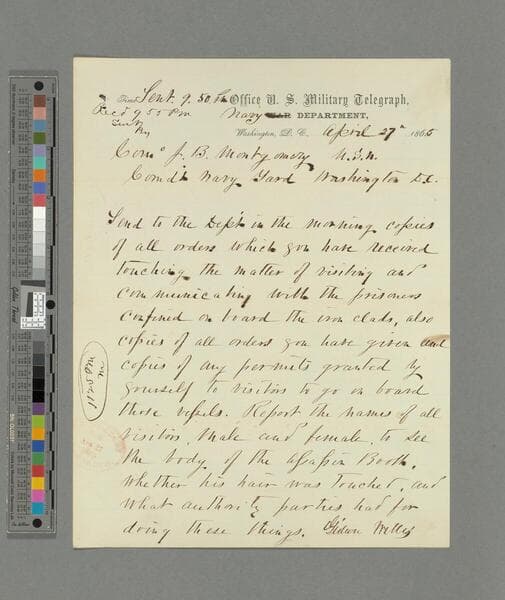 Time Sent. 9.50 Pm Office U. S. Military Telegraph,
Rec'd 9 55 Pm Navy WAR DEPARTMENT,
Washington, D. C. April 27" 1865
Com° J. B. Montgomery U.S.N.
Comd't Navy Yard Washington D.C.
Send to the Dep't in the morning copies
of all orders which you have received
touching the matter of visiting and
communicating with the prisoners
confined on board the iron clads, also
copies of all orders you have given and
copies of any permits granted by
yourself to visitors to go on board
those vessels. Report the names of all
visitors, male and female, to see
the body of the assassin Booth,
whether his hair was touched, and
what authority parties had for
doing these things. Gideon Welles